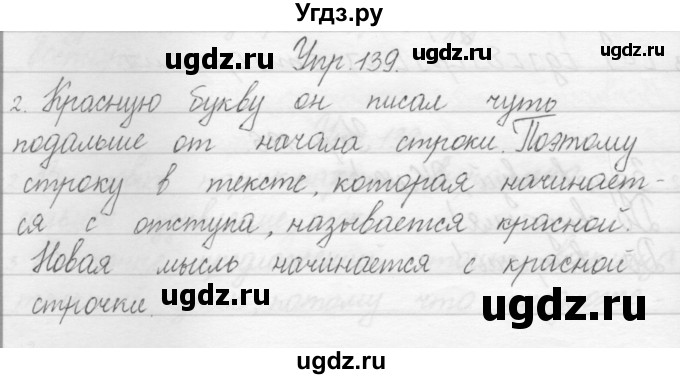 Угдз.ру
ugdz.ru ugdz.ru
Упр 139.
ugdz.ru
2. Красную букву он писал чуть
подальше от начала строки. Поэтому
строку в тексте, которая начинает-
ся с отступа, называется красной.
Новая мысль начинается с красной
строчки.
ugdz.ru ugdz.ru
ugdz.ru ugdz.ru
ugdz.ru